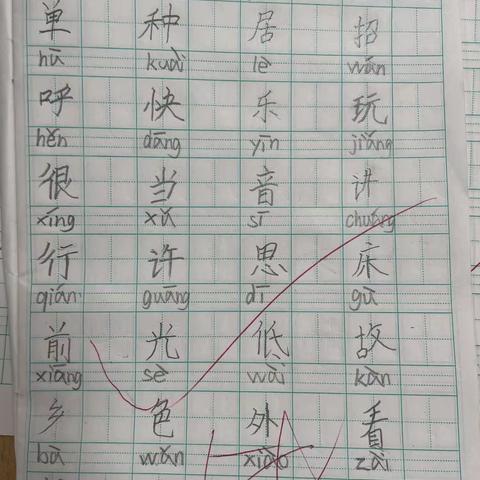 单 种 居 招
hū kuài lè wán
呼 快 乐 玩
hěn dāng yīn jiǎng
很 当 音 讲
xíng xǔ sī chuáng
行 许 思 床
qián guāng dī gù
前 光 低 故
xiāng sè wài kàn
乡 色 外 看
bà wǎn xiào zài